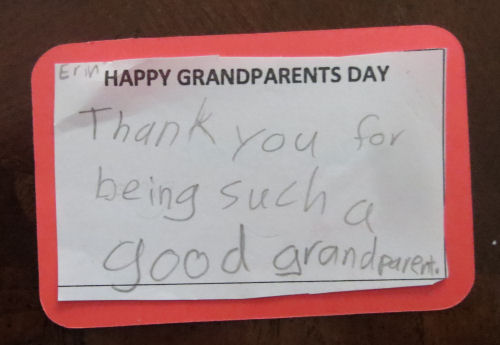 Erin
HAPPY GRANDPARENTS DAY
Thank you for
being such a
good grandparent.